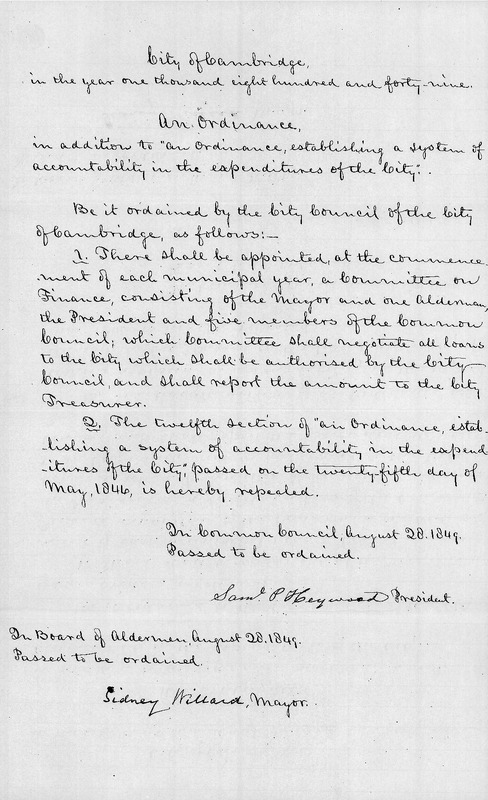 City of Cambridge,
in the year one thousand eight hundred and forty-nine.
An Ordinance,
in addition to "an Ordinance, establishing a system of
accountability in the expenditures of the City".
Be it ordained by the City Council of the City
of Cambridge, as follows:—
1. There shall be appointed, at the commence-
-ment of each municipal year, a Committee on
Finance, consisting of the Mayor and one Alderman,
the President and five members of the Common
Council; which Committee shall negotiate all loans
to the City which shall be authorised by the City
Council, and shall report the amount to the City
Treasurer.
2. The twelfth section of "an Ordinance, estab-
-lishing a system of accountability in the expend-
-itures of the City," passed on the twenty-fifth day of
May, 1846, is hereby repealed.
In Common Council, August 28. 1849.
Passed to be ordained.
Saml. P. Heywood President.
In Board of Aldermen, August 28. 1849.
Passed to be ordained.
Sidney Willard, Mayor.